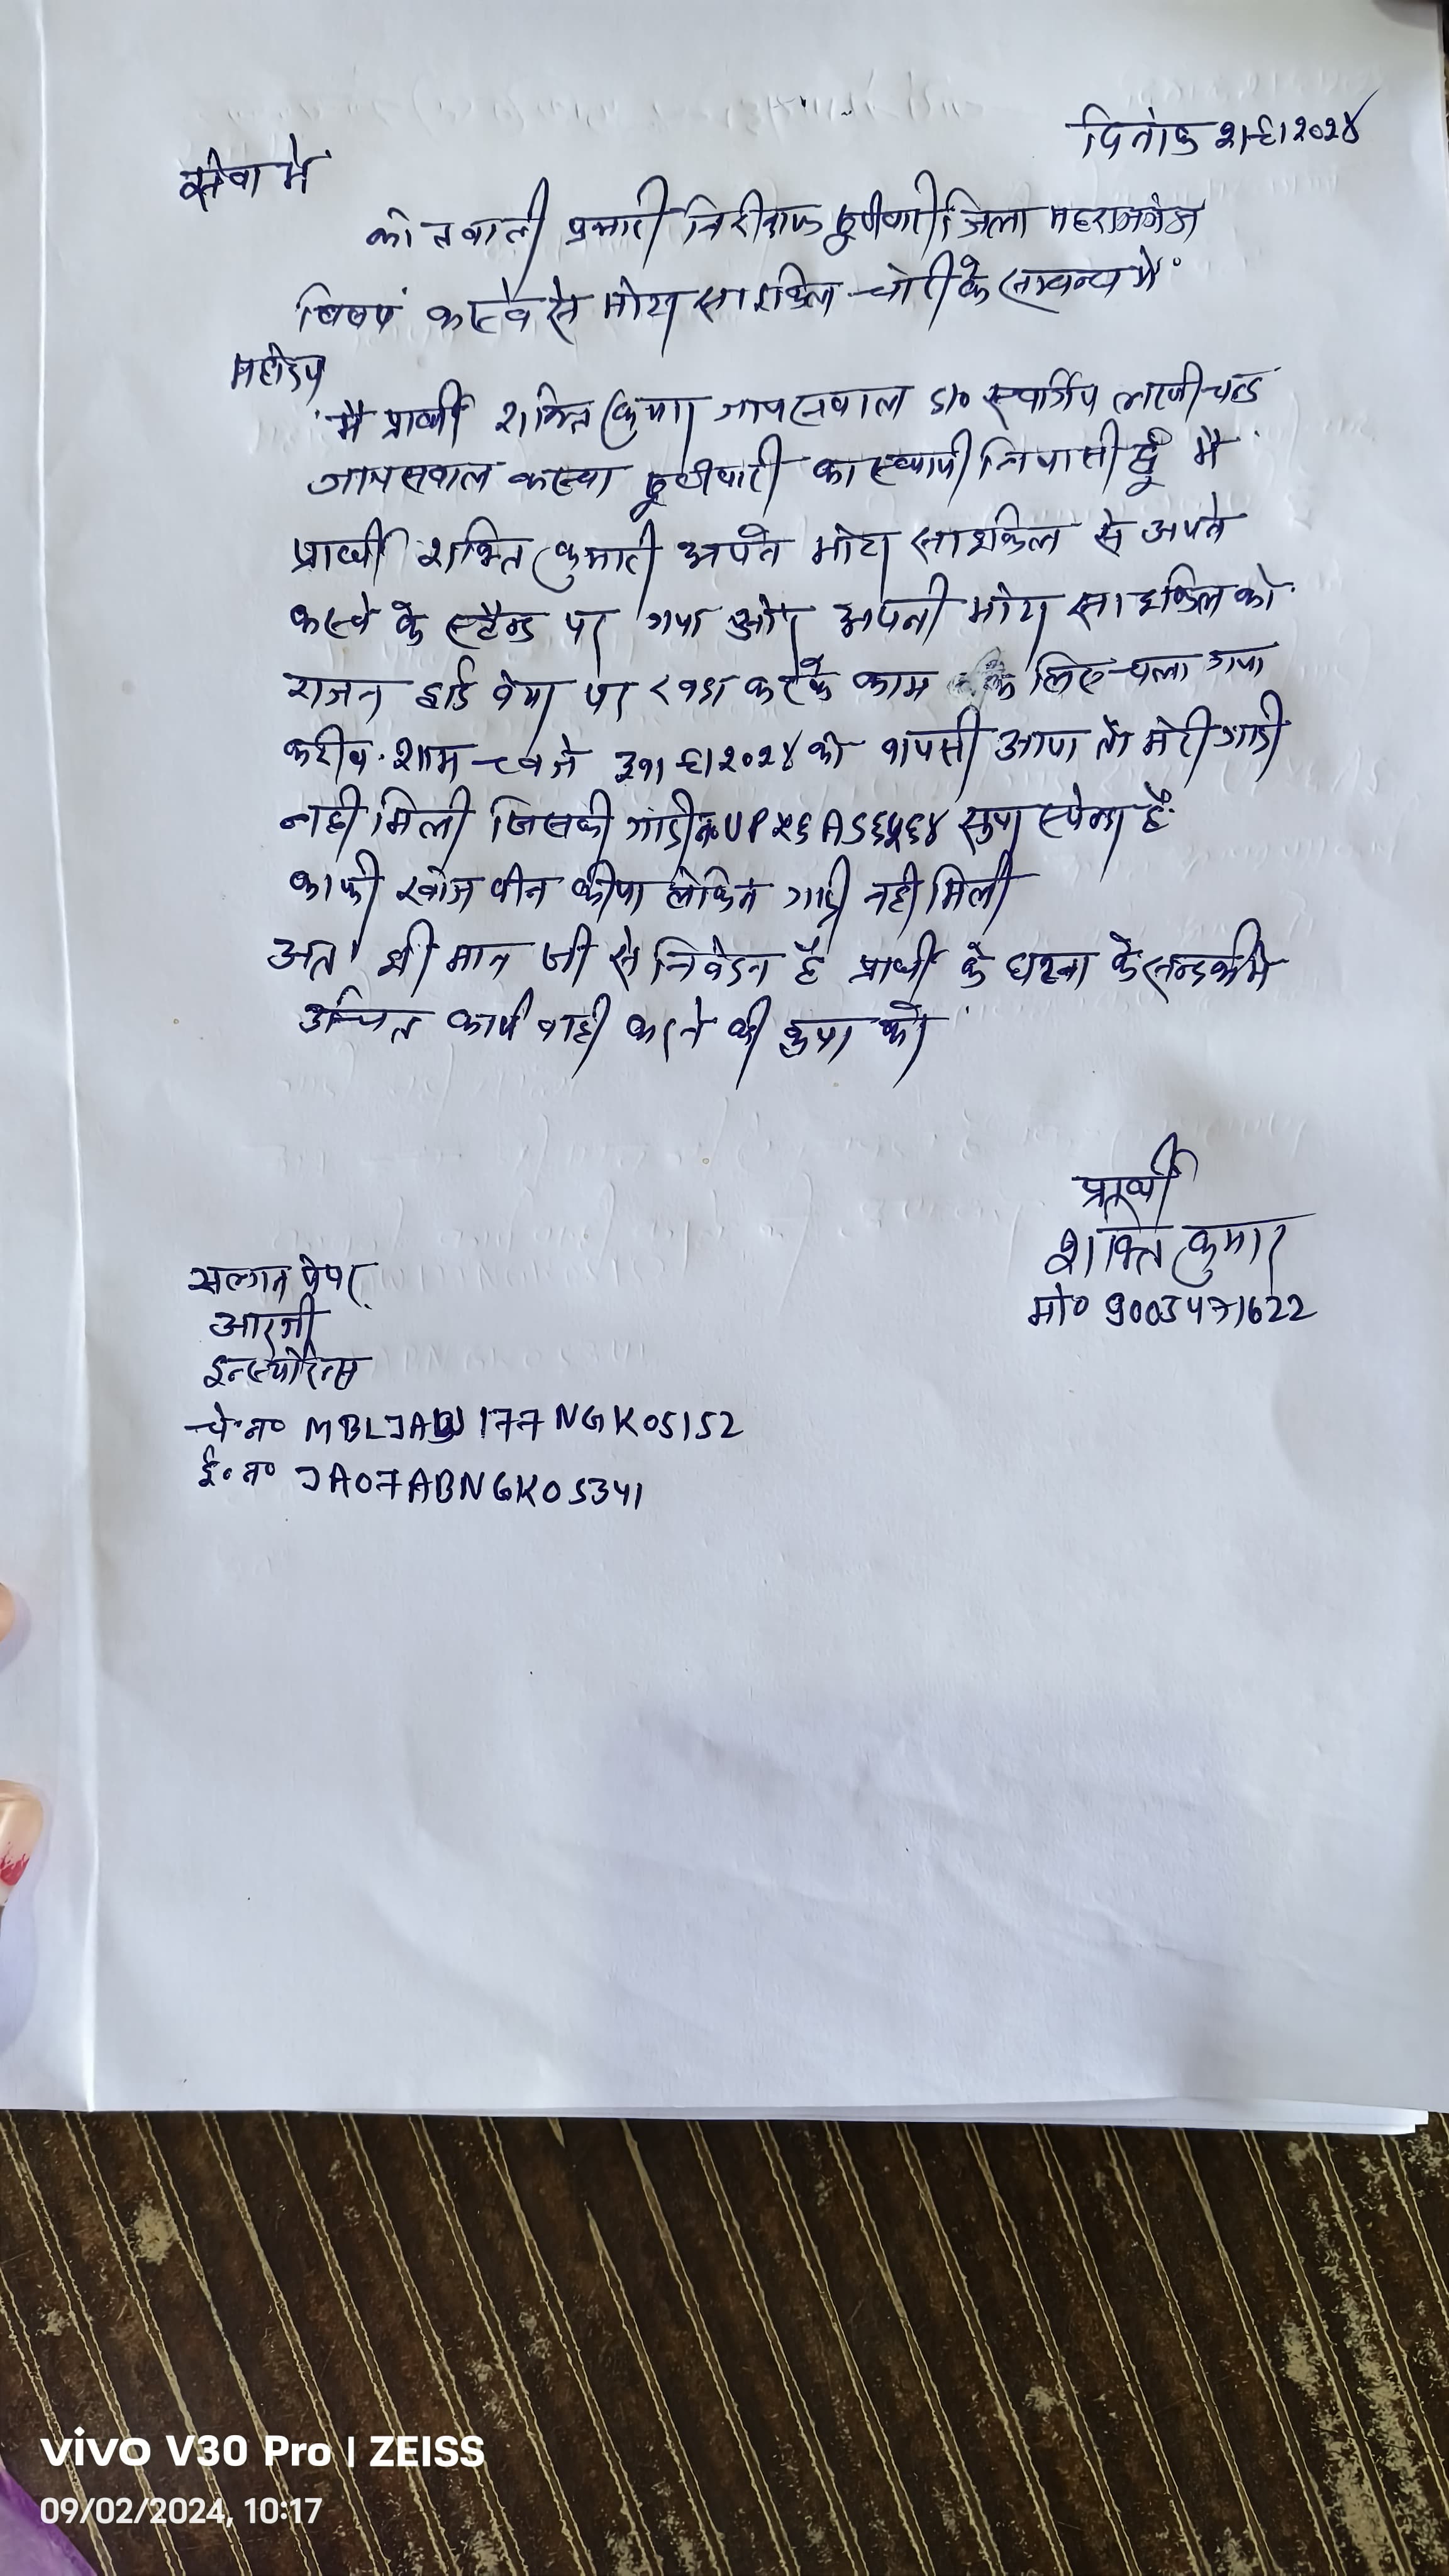 दिनांक २।९।२०२४
सेवा में
कोतवाली प्रभारी निरीक्षक जिला महराजगंज
विषय कस्वे से मोटर साइकिल चोरी के सम्वन्ध में
महोदय
मै प्रार्थी शक्ति कुमार जायसवाल S/० स्वर्गीय चन्द
जायसवाल कस्वा का स्थायी निवासी हूँ मै
प्रार्थी शक्ति कुमार अपने मोटर साइकिल से अपने
कस्वे के स्टैन्ड पर गया और अपनी मोटर साइकिल को
राजन पर खडा करके काम के लिए चला गया
करीव शाम वजे को वापसी आया तो मेरी गाडी
नही मिली जिसकी गाडी न० UP ५६ AS ६५६४ सुपर स्पेलन्डर है
काफी खोज वीन कीया लेकिन गाडी नही मिली
अतः श्री मान जी से निवेदन है प्रार्थी के घटना के सन्दर्भ मे
उचित कार्यवाही करने की कृपा करे
प्रार्थी
शक्ति कुमार
मो० 9003471622
सलग्न पेपर
आरसी
इन्स्योरेन्स
चे० न० 177NGK05152
ई० न० JA07ABNGK05341
vivo V30 Pro | ZEISS
09/02/2024, 10:17